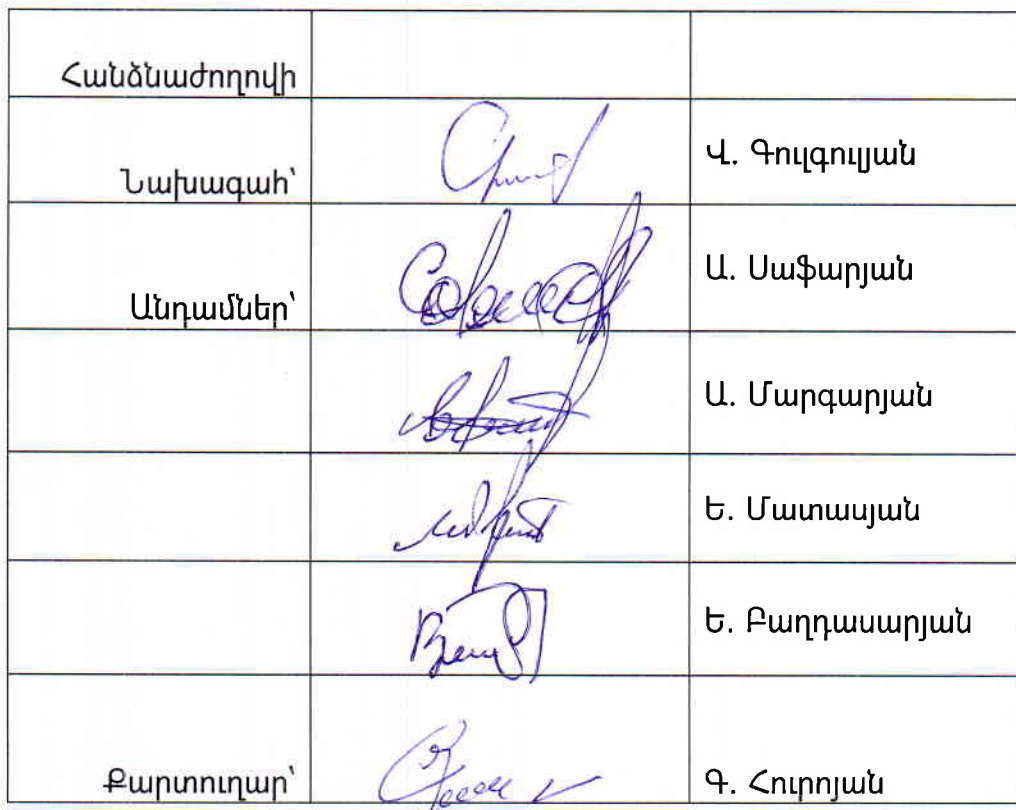 Հանձնաժողովի
Նախագահ՝ Վ. Գուլգուլյան
Անդամներ՝ Ա. Սաֆարյան
Ա. Մարգարյան
Ե. Մատասյան
Ե. Բաղդասարյան
Քարտուղար՝ Գ. Հուրոյան